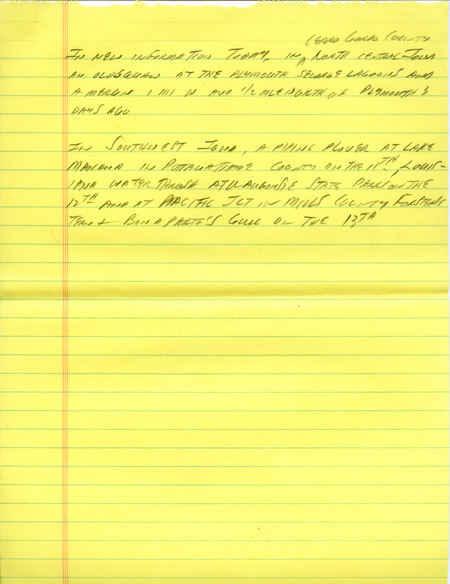 CERRO GORDO COUNTY
IN NEW INFORMATION TODAY, IN NORTH CENTRAL IOWA
AN OLDSQUAW AT THE PLYMOUTH SEWAGE LAGOONS AND
A MERLIN 1 MI W AND 1/2 MILE NORTH OF PLYMOUTH 3
DAYS AGO
IN SOUTHWEST IOWA, A PIPING PLOVER AT LAKE
MANAWA IN POTTAWATTAMIE COUNTY ON THE 11TH, LOUIS-
IANA WATERTHRUSH AT WAUBONSIE STATE PARK ON THE
12TH AND AT PACIFIC JCT IN MILLS COUNTY FORSTER'S
TERN & BONAPARTE'S GULL ON THE 13TH